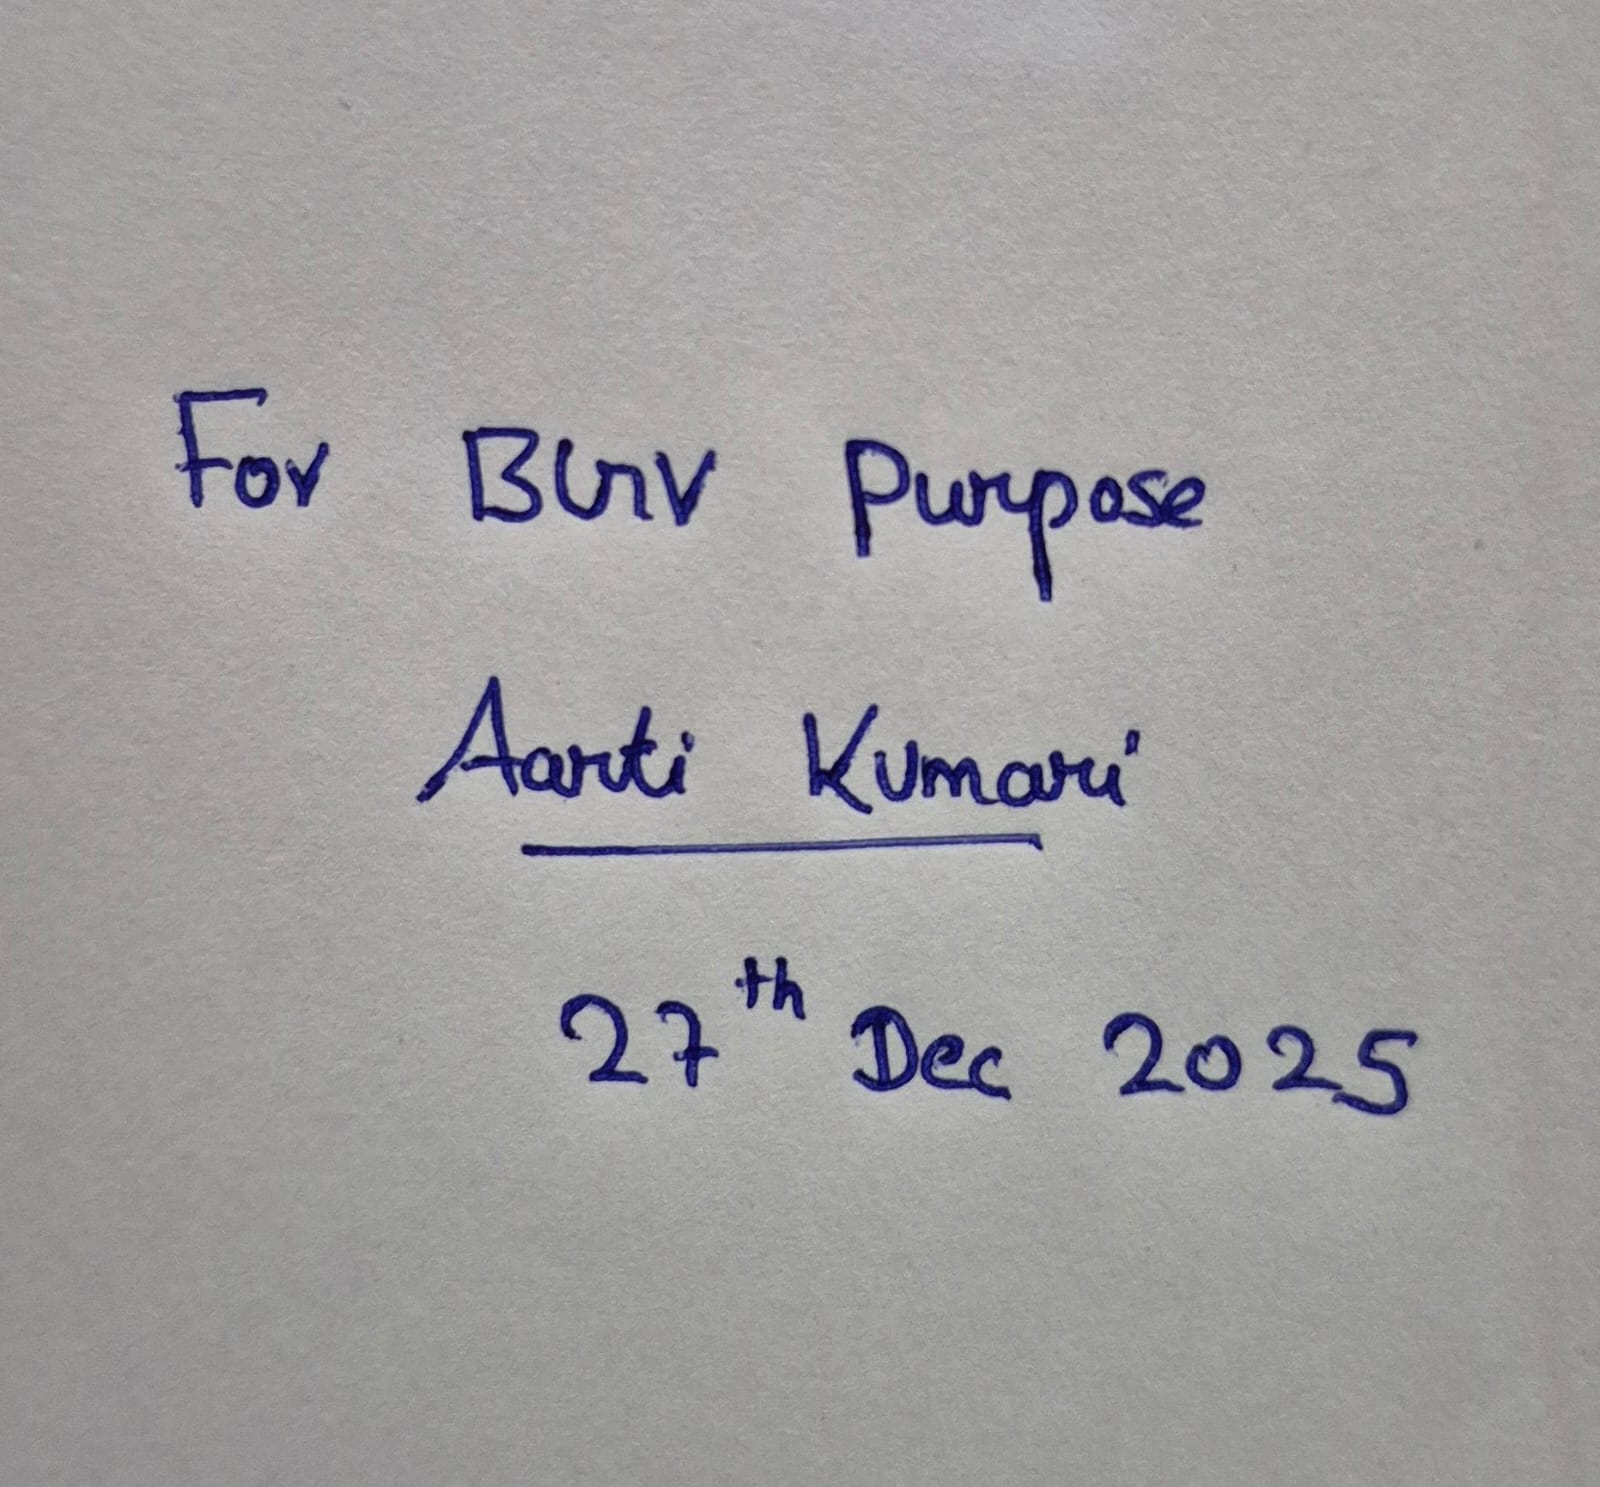 For BGV Purpose
Aarti Kumari
27th Dec 2025